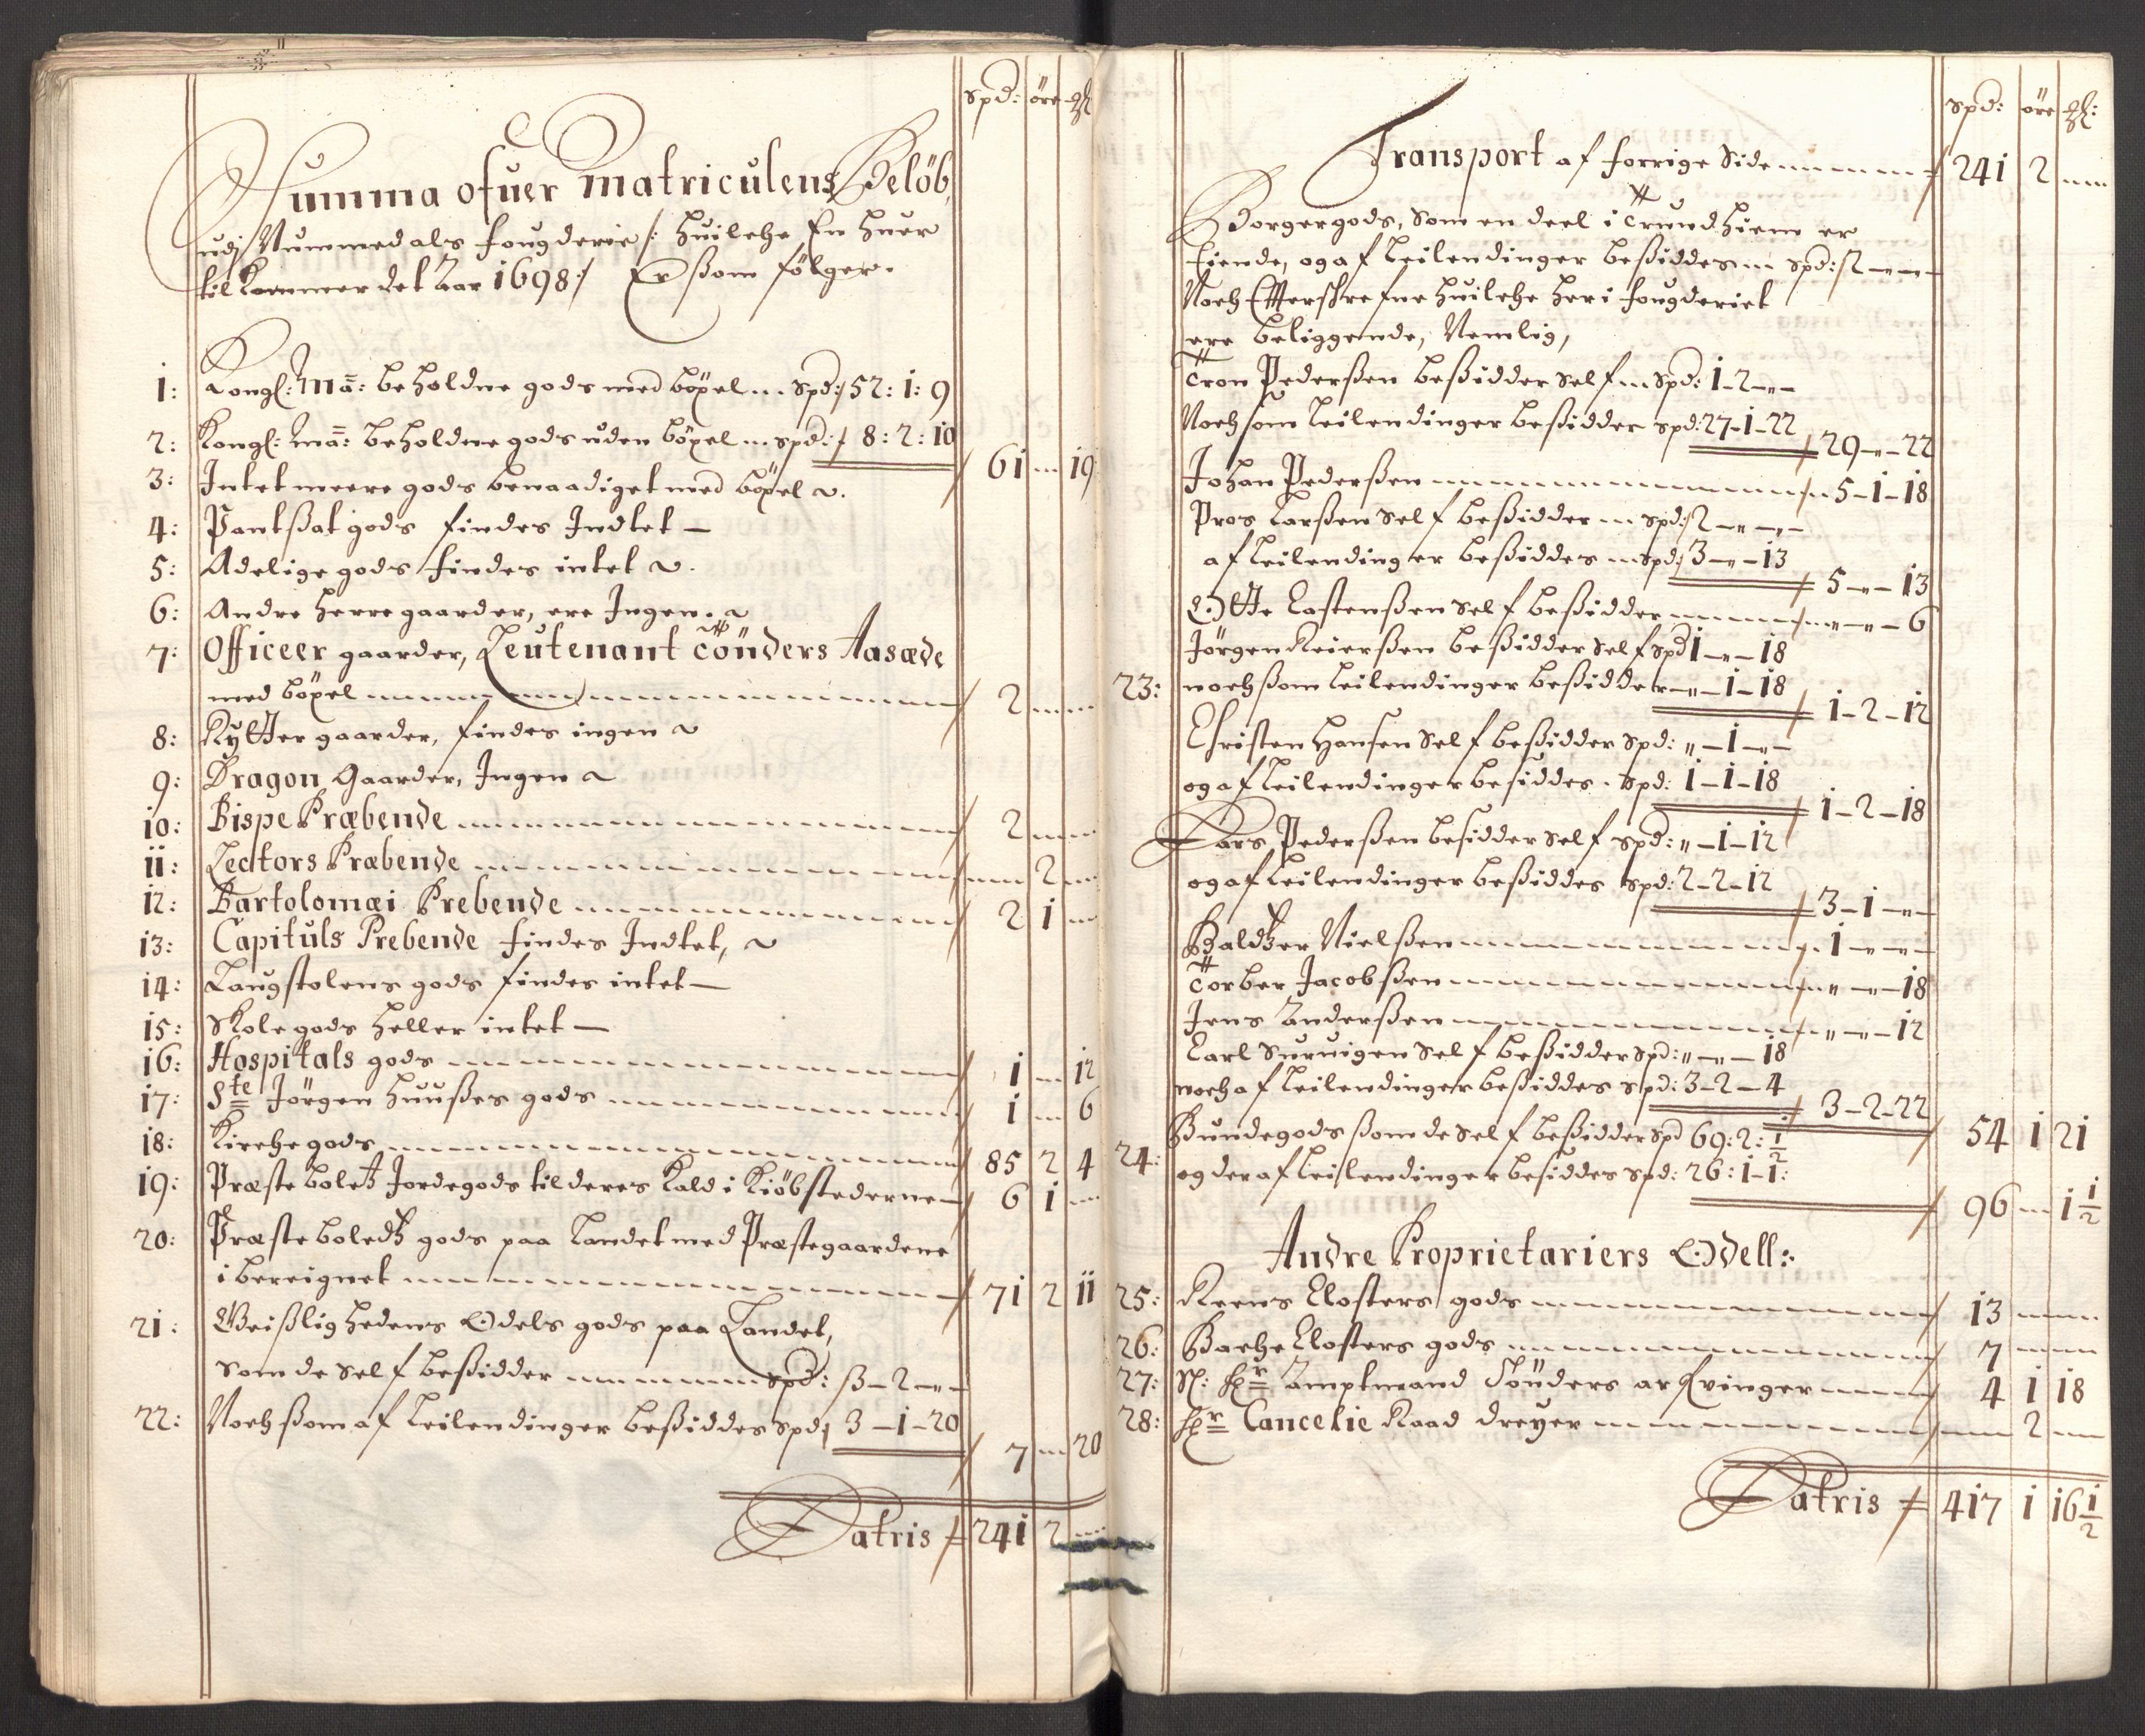 spd: öre ₰
Summa ofuer Matriculens Belöb,
udj Nummedals fougderie /: huilche En huer
til kommer det Aar 1698 :/ Er ßom følger.
1: Kongl: Maÿ: beholdne gods med böxel ... spd: 52: 1: 9
2: Kongl: Maÿ: beholdne gods uden böxel ... spd: 8: 2: 10
61 ... 19
3: Intet meere gods benaadiget med böxel
4: Pantßat gods findes Indtet —
5: Adelige gods findes intet
6: Andre herregaarder, ere Ingen.
7: Officeer gaarder, Leutenant Tönders Aasæde
med böxel 2
8: Rytter gaarder, findes ingen
9: Dragon Gaarder, Ingen
10: Bispe Præbende 2
11: Lectors Præbende 2
12: Bartolomæi Prebende 2 1
13: Capituls Prebende findes Indtet,
14: Laugstolens gods findes intet —
15: Skole gods heller intet —
16: Hospitals gods 1 ... 12
17: Ste Jörgen huußes gods 1 ... 6
18: Kirche gods 85 2 4
19: Præstebolet Jordegods til deres Kald i Kiöbstederne 6 1
20: Præstebolede gods paa Landet med Præstegaardene
i bereignet 71 2 11
21: Geißlighedens Odels gods paa Landet,
Som de Self beßidder spd: 3 – 2 – „ –
22: Noch ßom af Leilendinger beßiddes spd: 3 – 1 – 20
7 ... 20
Latris 241 2
spd: öre ₰:
Transport af forrige Side 241 2
Borgergods, Som en deel i Trundhiem er
Eiende, og af Leilendinger beßiddes ... spd: 2 – „ – „ –
Noch Efterskrefne huilche her i fougderiet
ere beliggende, Nemlig,
Tron Pederßen beßidder self ... spd: 1 – 2 – „ –
Noch som Leilendinger beßidder spd: 27 – 1 – 22
29 – „ – 22
Johan Pederßen 5 – 1 – 18
Pros Larßen self beßidder ... spd: 2 – „ – „ –
af Leilendinger beßiddes ... spd: 3 – „ – 13
5 – „ – 13
Otte Castenßen self beßidder „ – „ – 6
Jörgen Reierßen beßidder self spd 1 – „ – 18
23: noch ßom Leilendinger beßidder – „ – 1 – 18
1 – 2 – 12
Christen Hansen self beßidder spd: „ – 1 – „ –
og af Leilendinger besiddes . spd: 1 – 1 – 18
1 – 2 – 18
Lars Pederßen besidder self spd: „ – 1 – 12
og af Leilendinger beßiddes spd: 2 – 2 – 12
3 – 1 – „ –
Baldtzer Nielßen 1 – „ – „ –
Torber Jacobßen „ – „ – 18
Jens Anderßen „ – „ – 12
Carl Suruigen self beßidder spd: „ – „ – 18
noch af Leilendinger beßiddes spd: 3 – 2 – 4
3 – 2 – 22
54 1 21
24: Bundegods ßom de self beßidder spd 69: 2: 1/2
og der af Leilendinger besiddes spd: 26: 1 – 1:
96 ... 1 1/2
Andre Proprietariers Odell:
25: Reens Closters gods 13
26: Bache Closters gods 7
27: Sl: Hr Amptmand Tönders arfvinger 4 1 18
28: Hr Cancelie Raad dreyer 2
Latris 417 1 16 1/2